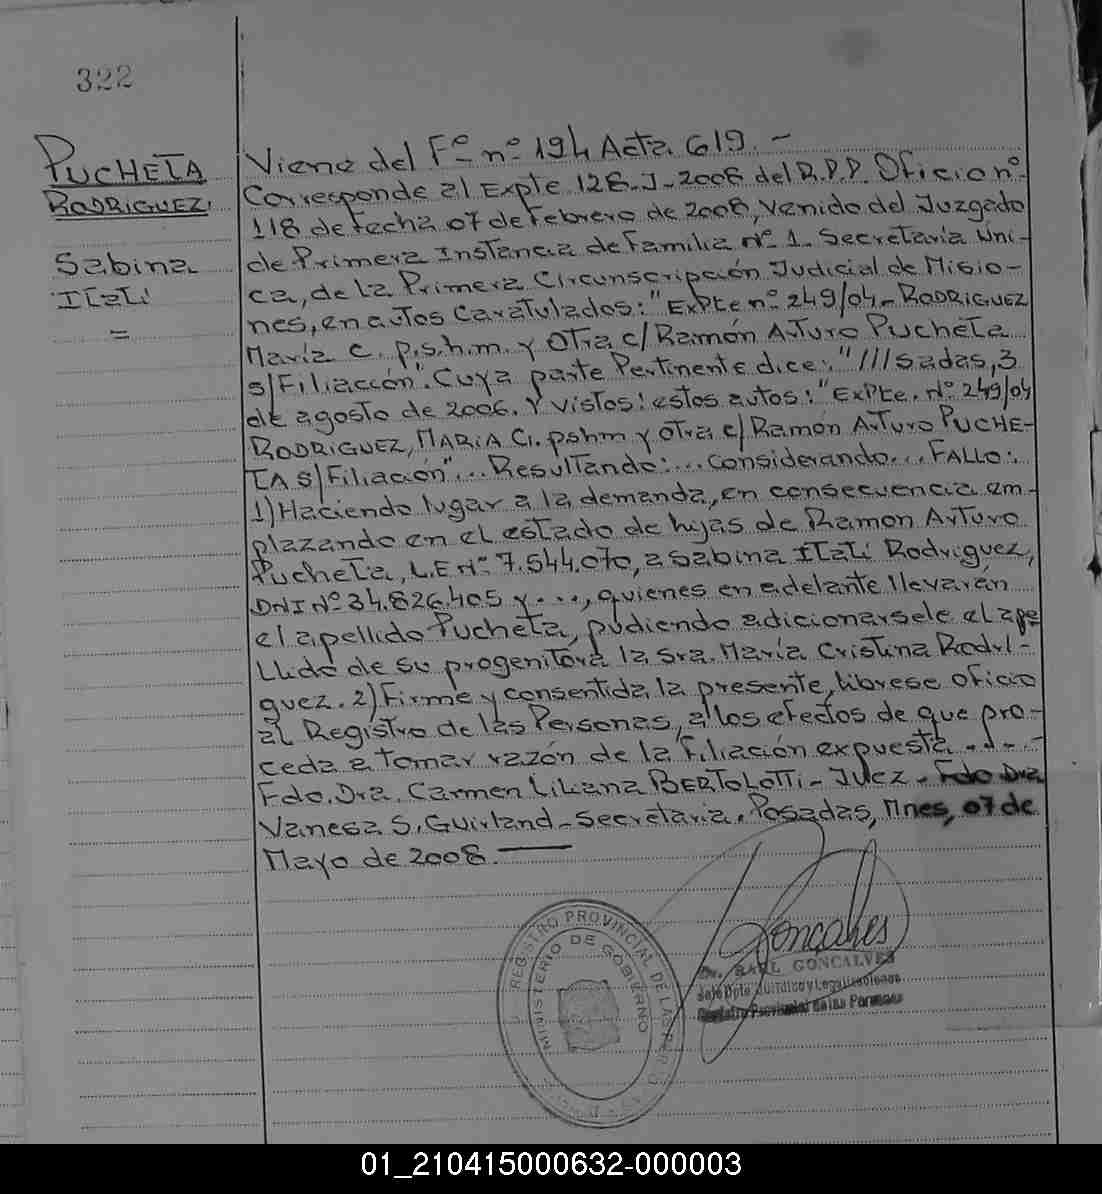 322
PUCHETA
RODRIGUEZ
Sabina
Itatí
=
Viene del Fº nº 194 Acta 619.-
Corresponde al Expte 128-J-2008 del R.P.P. Oficio nº
118 de fecha 07 de Febrero de 2008, venido del Juzgado
de Primera Instancia de Familia nº 1. Secretaría Uni-
ca, de la Primera Circunscripción Judicial de Misio-
nes, en autos caratulados: "Expte nº 249/04- RODRIGUEZ
María C. p.s.h.m. y Otra c/ Ramón Arturo Pucheta
s/Filiacción". Cuya parte Pertinente dice: "///sadas, 3
de agosto de 2006. Y Vistos: estos autos: "Expte. Nº 249/04
RODRIGUEZ, MARIA C. pshm y Otra c/ Ramón Arturo PUCHE-
TA S/Filiación"... Resultando:... Considerando... FALLO:
1) Haciendo lugar a la demanda, en consecuencia em-
plazando en el estado de hijas de Ramon Arturo
Pucheta, L.E Nº 7.544.070, a Sabina Itatí Rodriguez,
DNI Nº 34.826.405 y ...., quienes en adelante llevarán
el apellido Pucheta, pudiendo adicionarsele el ape
llido de su progenitora la Sra. María Cristina Rodrí-
guez. 2) Firme y consentida la presente, librese oficio
al Registro de las Personas, a los efectos de que pro-
ceda a tomar razón de la Filiación expuesta.-.-.-
Fdo. Dra. Carmen Liliana BERTOLOTTI- Juez. Fdo Dra
Vanesa S. Guirland- Secretaria. Posadas, Mnes, 07 de
Mayo de 2008.
Goncalves
Dr. RAUL GONCALVES
Jefe Dpto Jurídico y Legalizaciones
Registro Provincial de las Personas
REGISTRO PROVINCIAL DE LAS
MINISTERIO DE GOBIERNO
01_210415000632-000003